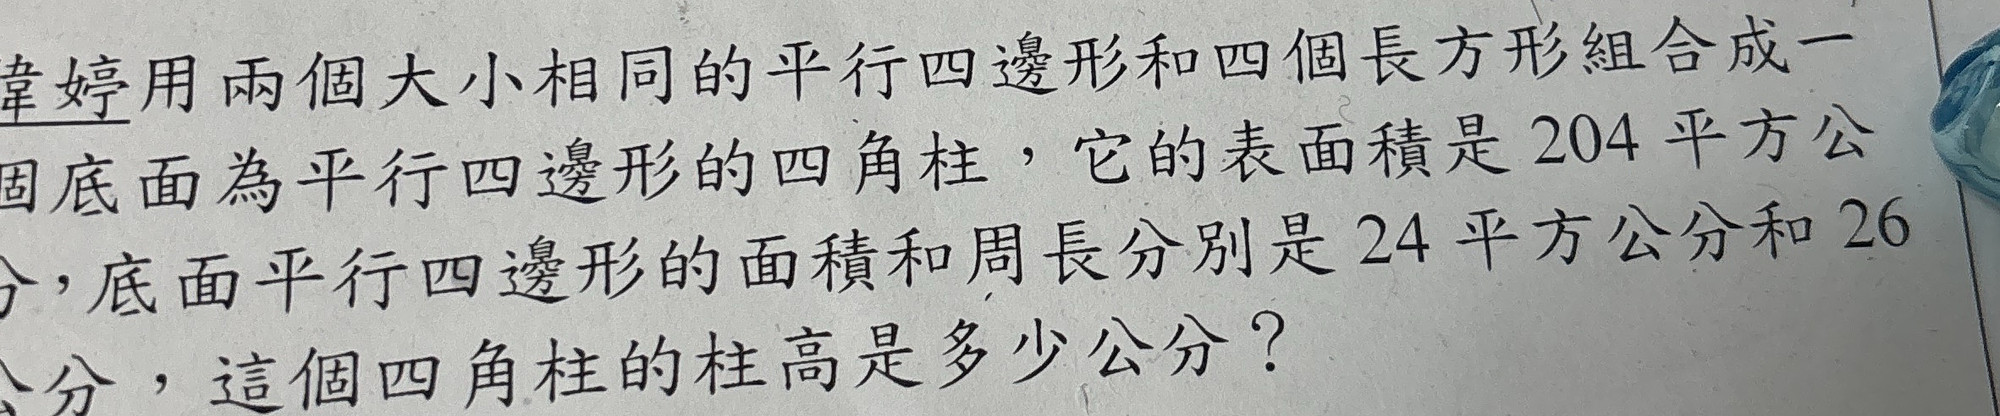 婷用兩個大小相同的平行四邊形和四個長方形組合成一
個底面為平行四邊形的四角柱，它的表面積是 204 平方公
分，底面平行四邊形的面積和周長分別是 24 平方公分和 26
公分，這個四角柱的柱高是多少公分？